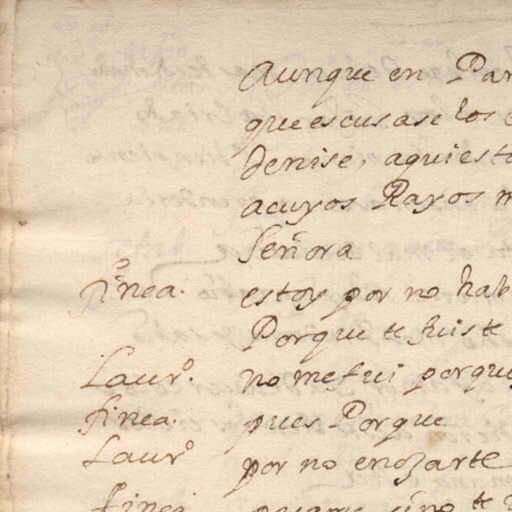 Aunque en Par
que escusase los
denise, aqui est
acuyos Rayos m
Señora
finea. estoy por no hab
Porque te fuiste
Laurº. no me fui porque
finea. pues Porque
Laurº por no enozarte